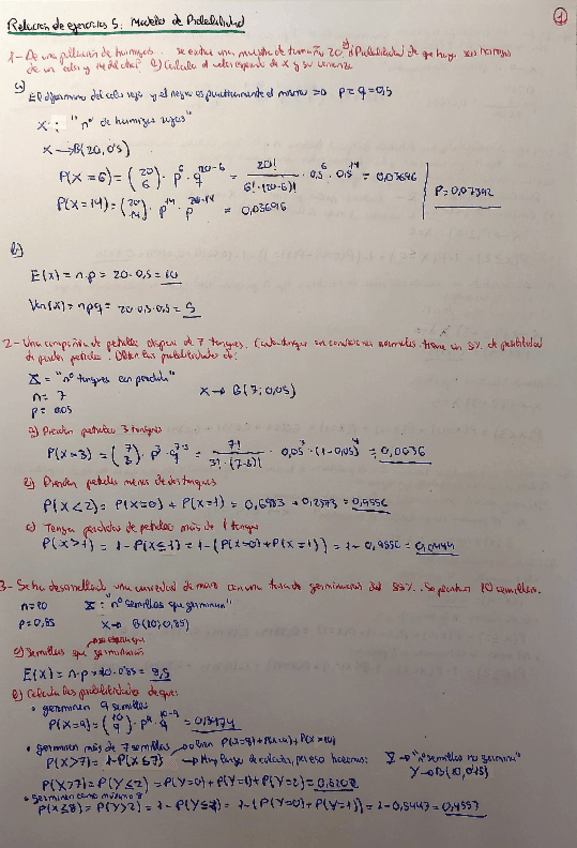 Relación de ejercicios 5: Modelos de Probabilidad
1
1- De una población de hormigas. Se extrae una muestra de tamaño 20. a) Probabilidad de que haya seis hormigas
de un color y b) Calcula el valor esperado de X y su varianza
a)
El del color rojo y el negro es prácticamente el mismo => p = q = 0,5
X : "nº de hormigas rojas"
X → B(20, 0'5)
P(X = 6) = (20 6) · p^6 · q^20-6 = 20! / 6!·(20-6)! · 0,5^6 · 0,5^14 = 0,03696
P(X = 14) = (20 14) · p^14 · p^20-14 = 0,03696
P = 0,07392
b)
E(X) = n·p = 20·0,5 = 10
Var(X) = npq = 20·0,5·0,5 = 5
2- Una compañía de petróleo dispone de 7 tanques. Cada tanque en condiciones normales tiene un 5% de posibilidad
de perder petróleo. Obtén las probabilidades de:
X = "nº tanques con pérdida"
n = 7
X → B(7; 0,05)
p = 0,05
a) Pierdan petróleo 3 tanques
P(X=3) = (7 3) · p^3 · q^7-3 = 7! / 3!·(7-3)! · 0,05^3 · (1-0,05)^4 = 0,0036
b) Pierdan petróleo menos de dos tanques
P(X<2) = P(X=0) + P(X=1) = 0,6983 + 0,2573 = 0,9556
c) Tengan pérdidas de petróleo más de 1 tanque
P(X>1) = 1-P(X≤1) = 1-(P(X=0)+P(X=1)) = 1-0,9556 = 0,0444
3- Se ha desarrollado una variedad de maíz con una tasa de germinación del 85%. Se plantan 10 semillas.
n=10
X: "nº semillas que germinan"
p=0,85
X → B(10; 0,85)
a) Semillas que germinarán
E(X) = n·p = 10·0'85 = 8,5
b) Calcula las probabilidades de que:
• germinen 9 semillas
P(X=9) = (10 9) · p^9 · q^10-9 = 0,3474
• germinen más de 7 semillas → P(X=8)+P(X=9)+P(X=10)
P(X>7) = 1-P(X≤7) → Muy largo de calcular, por eso hacemos: Y → "nº semillas no germinan"
Y → B(10, 0,15)
P(X>7) = P(Y≤2) = P(Y=0)+P(Y=1)+P(Y=2) = 0,8202
• germinen como máximo 8
P(X≤8) = P(Y≥2) = 1-P(Y≤1) = 1-(P(Y=0)+P(Y=1)) = 1-0,5443 = 0,4557